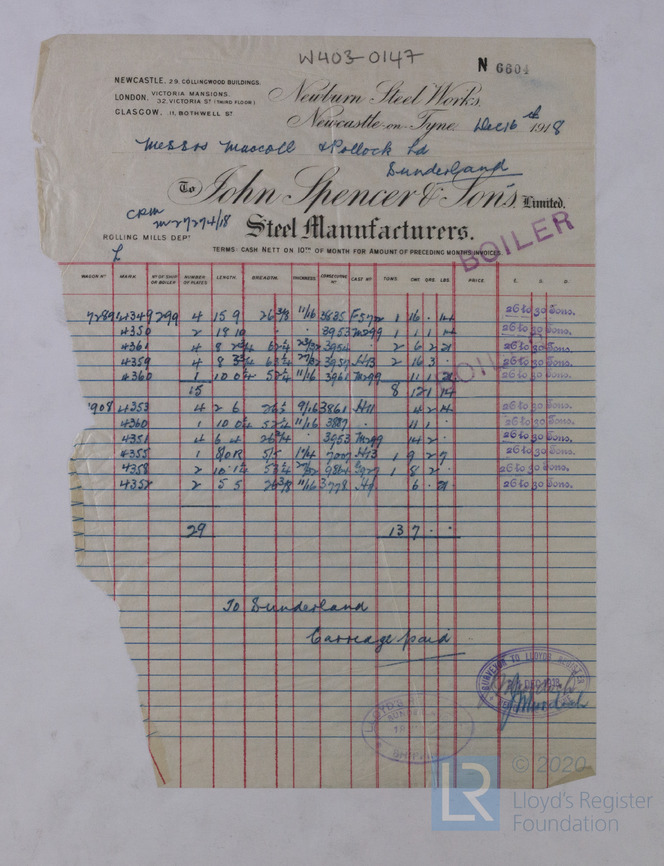 W403-0147
N 6604
NEWCASTLE. 29. COLLINGWOOD BUILDINGS.
LONDON. VICTORIA MANSIONS. 32. VICTORIA ST (THIRD FLOOR)
GLASGOW. 11, BOTHWELL ST
Newburn Steel Works,
Newcastle on Tyne Dec 16th 1918
Messrs Maccoll & Pollock Ld
Sunderland
To John Spencer & Sons, Limited.
Steel Manufacturers.
ROLLING MILLS DEPT
TERMS- CASH NETT ON 10TH OF MONTH FOR AMOUNT OF PRECEDING MONTHS INVOICES.
BOILER
WAGON NO MARK NO OF SHIP OR BOILER NUMBER OF PLATES LENGTH. BREADTH. THICKNESS. CONSECUTIVE NO CAST NO TONS CWT QRS LBS PRICE. £. S. D.
7289 4349 299 4 15 9 26 3/8 11/16 3835 1 16 . 14 26 to 30 Tons.
4350 2 18 10 . . 3953 M299 1 1 1 14 26 to 30 Tons.
4361 4 8 3954 2 6 2 21 26 to 30 Tons.
4359 4 8 2 16 3 . 26 to 30 Tons.
4360 1 10 11/16 3961 M299 11 1 21 26 to 30 Tons.
15 8 12 1 14
1908 4353 4 2 6 9/16 3861 H11 4 2 14 26 to 30 Tons.
4360 1 10 11/16 11 1 . 26 to 30 Tons.
4351 4 6 4 3953 M299 14 2 . 26 to 30 Tons.
4355 1 5/5 1 9 2 7 26 to 30 Tons.
4358 2 10 1 8 2 . 26 to 30 Tons.
4352 2 5 5 26 3/8 11/16 3778 6 . 21 26 to 30 Tons.
29 13 7 . .
To Sunderland
Carriage paid
SURVEYOR TO LLOYDS REGISTER
DEC 1918
J Murdoch
LLOYD'S
LR © 2020
Lloyd's Register
Foundation